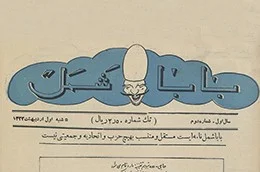 بابا شمل
سال اول، شماره دوم
( تک شماره ۲٫۵۰ ریال )
۵ شنبه اول اردیبهشت ۱۳۲۲
باباشمل نامه‌ایست مستقل و منتسب بهیچ حزب و اتحادیه و جمعیتی نیست